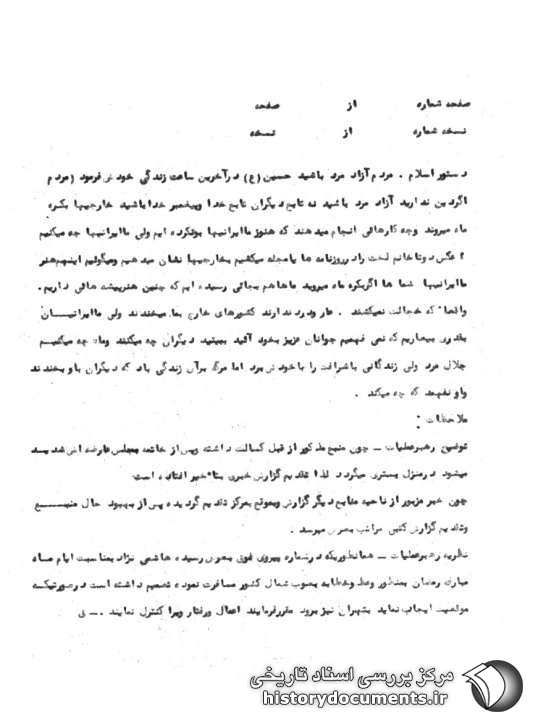 صفحه شماره از صفحه
نسخه شماره از نسخه
دستور اسلام . مردم آزاد مرد باشید حسین (ع) در آخرین ساعت زندگی خودش فرمود (مردم
اگر دین ندارید آزاد مرد باشید نه تابع دیگران تابع خدا و پیغمبر خدا باشید خارجیها بکره
ماه میروند و چه کارهائی انجام میدهند که هنوز ما ایرانیها نکرده ایم ولی ما ایرانیها چه میکنیم
عکس دو تا خانم لخت را در روزنامه ها یا مجله میکشیم بخارجیها نشان میدهیم و میگوئیم اینهم هنر
ما ایرانیها شما ها اگر بکره ماه میروید ما ها هم بجائی رسیده ایم که چنین هنر پیشه هائی داریم .
واقعا که خجالت نمیکشند . عار و درد ندارند کشورهای خارج بما میخندند ولی ما ایرانیان
بقدری بیعاریم که نمی فهمیم جوانان عزیز بخود آئید ببینید دیگران چه میکنند و ما چه میکنیم
جلال مرد ولی زندگانی با شرافت را با خودش برد اما مرگ بر آن زندگی باد که دیگران باو بخندند
و او نفهمد که چه میکند .
ملاحظات :
توضیح رهبر عملیات - چون منبع مذکور از قبل کسالت داشته و پس از خاتمه مجلس عارضه اش شدید
میشود در منزل بستری میگردد لذا تقدیم گزارش خبری بتاخیر افتاده است
چون خبر مزبور از ناحیه منابع دیگر گزارش و بموقع بمرکز تقدیم گردیده پس از بهبود حال منبع
و تقدیم گزارش کتبی مراتب بعرض میرسد .
نظریه رهبر عملیات - همانطوریکه در شماره پیروی فوق بعرض رسیده هاشمی نژاد بمناسبت ایام ماه
مبارک رمضان بمنظور وعظ و خطابه بصوب شمال کشور مسافرت نموده تصمیم داشته است در صورتیکه
موقعیت ایجاب نماید بتهران نیز برود مقرر فرمایند اعمال و رفتار ویرا کنترل نمایند .
مرکز بررسی اسناد تاریخی
historydocuments.ir